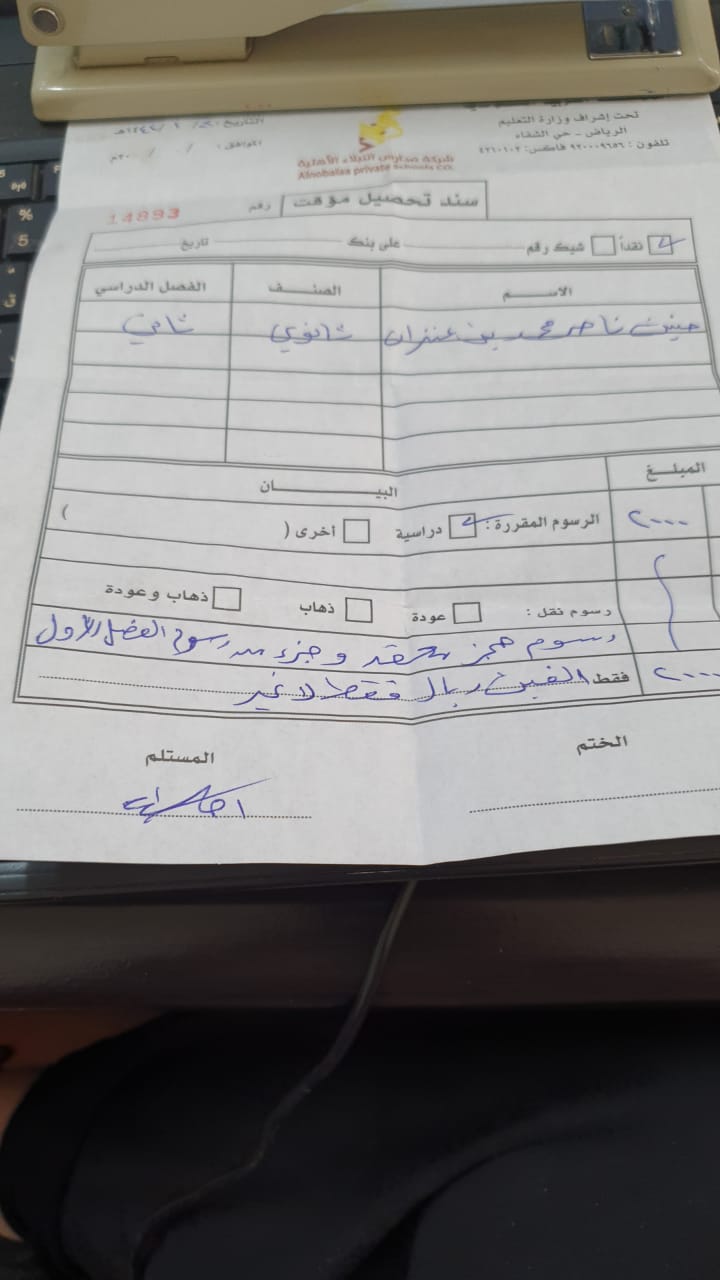 تحت إشراف وزارة التعليم
الرياض - حي الشفاء
تلفون : ٩٢٠٠٠٩٦٥٦ فاكس: ٤٢٦٠١٠٢
شركة مدارس النبلاء الأهلية
Alnobalaa private Schools Co.
التاريخ: / / ١٤٤هـ
الموافق: / / ٢٠٠م
سند تحصيل مؤقت
رقم 14893
نقداً شيك رقم على بنك تاريخ
الاسم الصنف الفصل الدراسي
ناصر محمد بن ثانوي ثاني
المبلغ البيان
٢٠٠٠ الرسوم المقررة: دراسية أخرى ( )
رسوم نقل: عودة ذهاب ذهاب وعودة
رسوم حجز مقعد وجزء من رسوم الفصل الأول
٢٠٠٠ فقط الفين ريال فقط لا غير
الختم المستلم